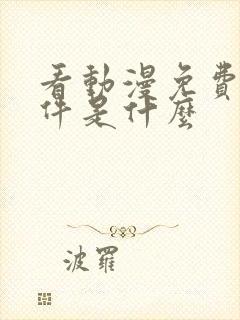 看動漫免費
件是什麼
波羅